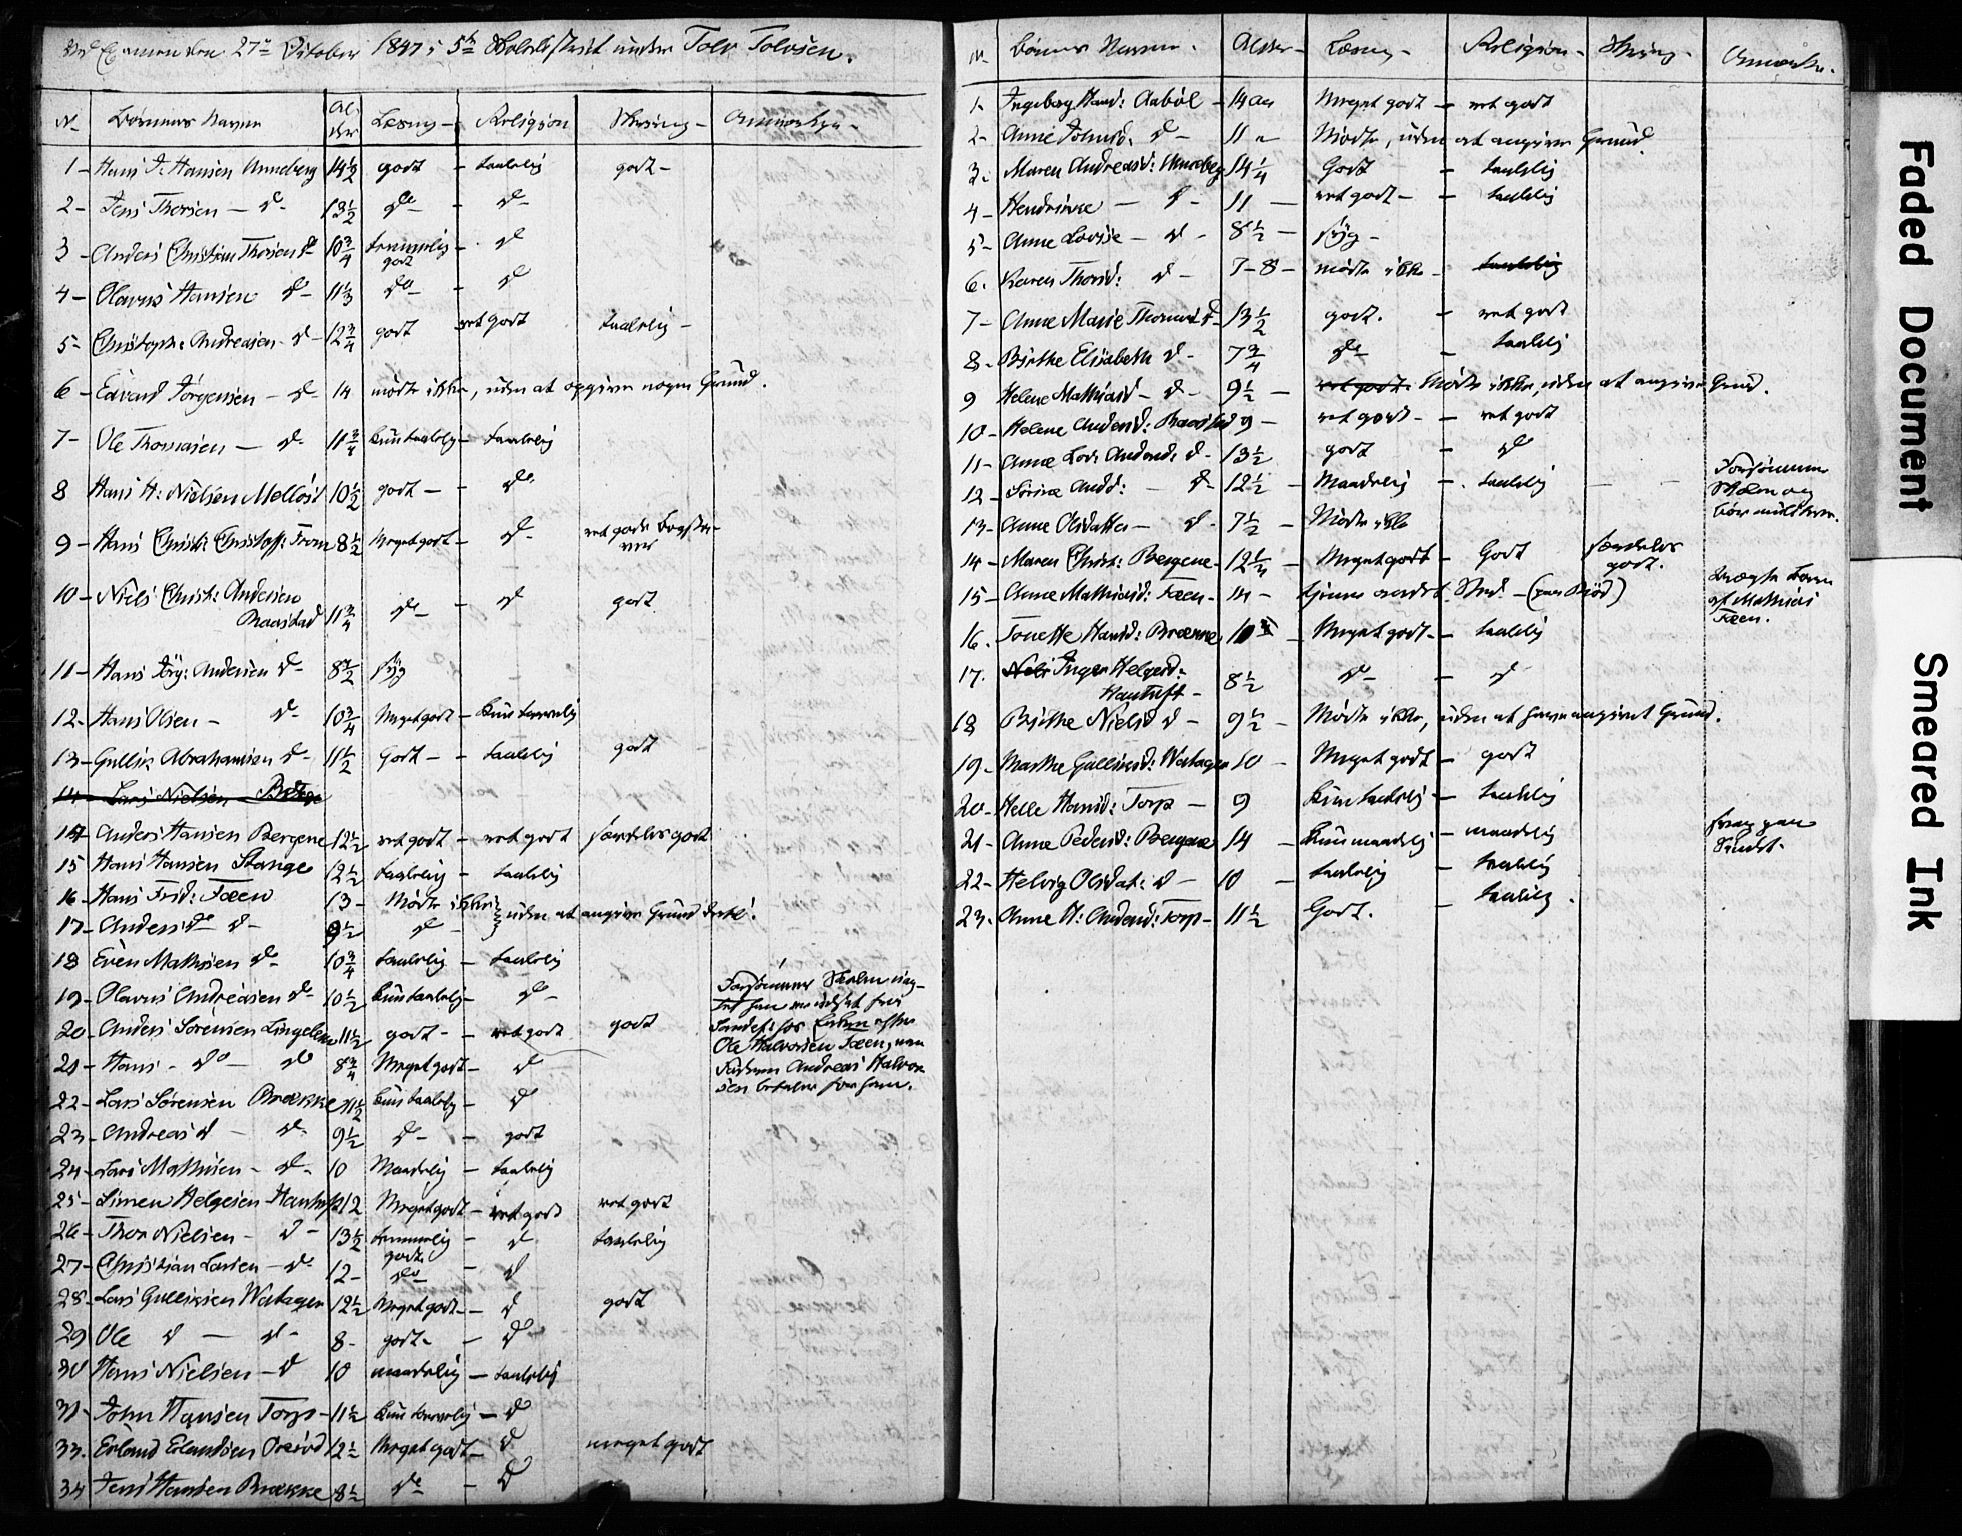 Ved Examen den 27de October 1847 i 5te Skoledistrict under Tolv Tolvsen.
N. Børnenes Navne Alder Læsning Religion Skrivning Anmærkn.
1 - Hans J. Hansen Anneberg 14 1/2 godt - taalelig godt -
2 - Jens Thorsen - do - 13 1/2 do - do -
3 - Anders Christian Thorsen do 10 3/4 temmelig godt - do
4 - Olavus Hansen do - 11 1/3 do - do
5 - Christoph: Andreasen - do - 12 3/4 godt ret godt taalelig -
6 - Edvard Jörgensen - do - 14 mødte ikke, uden at opgive nogen Grund.
7 - Ole Thomasen - do - 11 3/4 kun taalelig - taalelig
8 Hans H: Nielsen Mellös 10 1/2 godt - - do
9 - Hans Christ: Christoff: From 8 1/2 Meget godt - do - ret gode Bogstaver
10 - Niels Christ: Andersen
Raastad 11 3/4 do - do godt
11 - Hans Jörg: Andersen do - 8 1/2 syg
12 - Hans Olsen - do - 10 3/4 Meget godt - kun taalelig
13 - Gullik Abrahamsen do - 11 1/2 Godt - - taalelig godt
14 - Lars Nielsen
14 - Anders Hansen Bergene 12 1/2 ret godt - ret godt særdeles godt
15 Hans Hansen Stange 12 1/2 taalelig - taalelig
16 - Hans Frid: Fæen 13 - Mødte ikke
17 - Anders do do - 9 1/2 do - uden at angive Grund dertil.
18 Even Mathisen do - 10 3/4 taalelig - taalelig
19 - Olavus Andreasen do - 10 1/2 kun taalelig - do -
20 - Anders Sörensen Lingelem 11 1/2 godt - - ret godt godt
21 - Hans - do - do 8 3/4 Meget godt - do
Forsömmer Skolen
Ole Halvorsen Fæen, men
Faderen Andreas Halvor-
sen betaler for ham.
22 - Lars Sørensen Brække 11 1/2 kun taalelig - do
23 - Andreas do - do - 9 1/2 do - - godt
24 - Lars Mathisen - do - 10 Maadelig - taalelig
25 - Simen Helgesen Hauntuft 12 Meget godt - ret godt ret godt
26 - Thor Nielsen - do - 13 1/2 temmelig godt - do taalelig
27 - Christian Larsen - do - 12 - do - do
28 - Lars Gulliksen Watager 12 1/2 Meget godt - - do godt
29 Ole do - do - 8 - godt - - do
30 Hans Nielsen - do 10 maadelig - taalelig
31 - John Hansen Torp - 11 1/2 kun taalelig - do
33. Erland Erlandsen 12 1/2 Meget godt - do meget godt
34 Jens Hansen Brække 8 1/2 do - do
N. Børnenes Navne. Alder - Læsng - Religion - Skrivng - Anmærkn.
1. Ingeborg Hansd: Aaböl - 14 Aar Meget godt - ret godt
2 - Anne Johnsd. do - 11 " Mødte, uden at angive Grund.
3. Maren Andreasd: Anneberg 14 1/4 Godt - taalelig
4 - Hendrikke - do - 11 - ret godt - - taalelig
5 - Anne Lovise - do - 8 1/2 - syg -
6. Karen Thorsd: do - 7-8 - mødte ikke - taalelig
7 - Anne Marie Thomasd do - 13 1/2 godt. - ret godt
8 - Birthe Elisabeth do - 7 3/4 do - taalelig
9 Helene Mathiasd - do - 9 1/2 - ret godt. Mødte ikke, uden at angive Grund.
10 - Helene Andersd: Raastad 9 - ret godt - - ret godt
11 - Anne Lov: Andersd: do - 13 1/2 godt - do
12 - Sörine Andd: - do - 12 1/2 - Maadelig - taalelig - - Forsömmer
Skolen og
bör mulkteres.
13 - Anne Olsdatter - do - 7 1/2 - Mødte ikke
14 - Maren Christ: Bergene - 12 1/4 - Meget godt - Godt særdeles
godt.
15 - Anne Mathiasd: Fæen - 14 - tjener andet Sted -
af Mathias
Fæen.
16. Tonette Hansd: Brække, 10 3/4 - Meget godt - - taalelig
17. Inger Helgesd:
Hauntuft - 8 1/2 do - - do
18 Birthe Nielsd do - 9 1/2 - Mødte ikke, uden at have angivet Grund.
19 - Marthe Gulliksd: Watager 10 - Meget godt - godt
20 - Helle Hansd: Torp - 9 kun taalelig - taalelig
21 - Anne Pedersd: Bergene 14 - kun maadelig - maadelig
22 - Helvig Olsdat: do - 10 - taalelig - taalelig
23. Anne H: Andersd: Torp - 11 1/2 Godt. - taalelig.
Faded Document
Smeared Ink